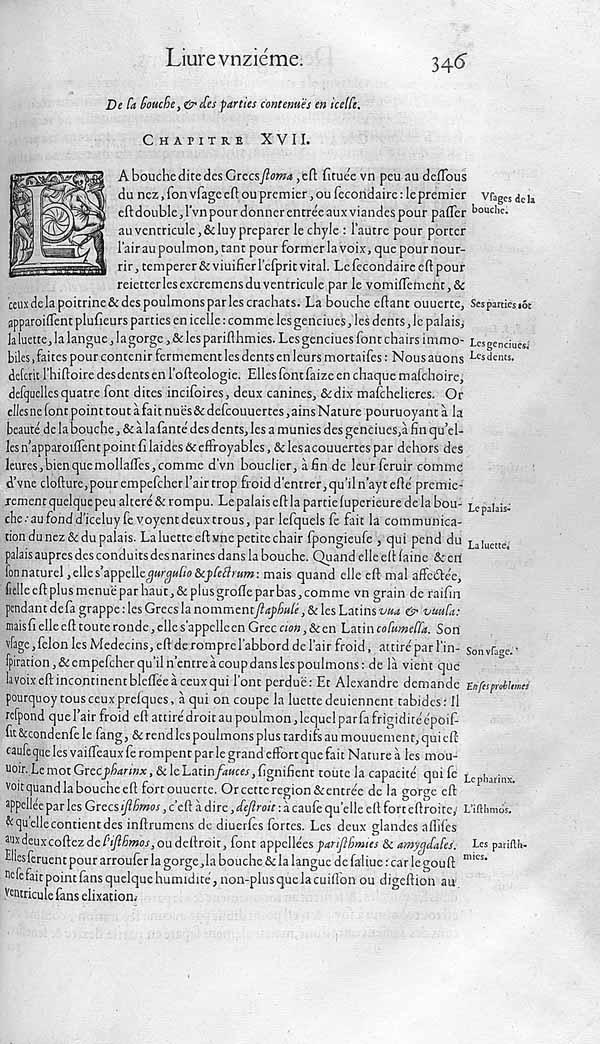 Liure vnziéme. 346
De la bouche, & des parties contenuës en icelle.
CHAPITRE XVII.
LA bouche dite des Grecs ſtoma, eſt ſituée vn peu au deſſous
du nez, ſon vſage eſt ou premier, ou ſecondaire: le premier
eſt double, l'vn pour donner entrée aux viandes pour paſſer
au ventricule, & luy preparer le chyle: l'autre pour porter
l'air au poulmon, tant pour former la voix, que pour nour-
rir, temperer & viuifier l'eſprit vital. Le ſecondaire eſt pour
reietter les excremens du ventricule par le vomiſſement, &
ceux de la poitrine & des poulmons par les crachats. La bouche eſtant ouuerte,
apparoiſſent pluſieurs parties en icelle: comme les genciues, les dents, le palais,
la luette, la langue, la gorge, & les pariſthmies. Les genciues ſont chairs immo-
biles, faites pour contenir fermement les dents en leurs mortaiſes: Nous auons
deſcrit l'hiſtoire des dents en l'oſteologie. Elles ſont ſaize en chaque maſchoire,
deſquelles quatre ſont dites inciſoires, deux canines, & dix maſchelieres. Or
elles ne ſont point tout à fait nuës & deſcouuertes, ains Nature pouruoyant à la
beauté de la bouche, & à la ſanté des dents, les a munies des genciues, à fin qu'el-
les n'apparoiſſent point ſi laides & effroyables, & les a couuertes par dehors des
leures, bien que mollaſſes, comme d'vn bouclier, à fin de leur ſeruir comme
d'vne cloſture, pour empeſcher l'air trop froid d'entrer, qu'il n'ayt eſté premie-
rement quelque peu alteré & rompu. Le palais eſt la partie ſuperieure de la bou-
che: au fond d'iceluy ſe voyent deux trous, par leſquels ſe fait la communica-
tion du nez & du palais. La luette eſt vne petite chair ſpongieuſe, qui pend du
palais aupres des conduits des narines dans la bouche. Quand elle eſt ſaine & en
ſon naturel, elle s'appelle gurgulio & plectrum: mais quand elle eſt mal affectée,
ſi elle eſt plus menuë par haut, & plus groſſe par bas, comme vn grain de raiſin
pendant de ſa grappe: les Grecs la nomment ſtaphulé, & les Latins vua & vuula:
mais ſi elle eſt toute ronde, elle s'appelle en Grec cion, & en Latin columella. Son
vſage, ſelon les Medecins, eſt de rompre l'abbord de l'air froid, attiré par l'in-
ſpiration, & empeſcher qu'il n'entre à coup dans les poulmons: de là vient que
la voix eſt incontinent bleſſée à ceux qui l'ont perduë: Et Alexandre demande
pourquoy tous ceux preſques, à qui on coupe la luette deuiennent tabides: Il
reſpond que l'air froid eſt attiré droit au poulmon, lequel par ſa frigidité époiſ-
ſit & condenſe le ſang, & rend les poulmons plus tardifs au mouuement, qui eſt
cauſe que les vaiſſeaux ſe rompent par le grand effort que fait Nature à les mou-
uoir. Le mot Grec pharinx, & le Latin fauces, ſignifient toute la capacité qui ſe
voit quand la bouche eſt fort ouuerte. Or cette region & entrée de la gorge eſt
appellée par les Grecs iſthmos, c'eſt à dire, deſtroit: à cauſe qu'elle eſt fort eſtroite,
& qu'elle contient des inſtrumens de diuerſes ſortes. Les deux glandes aſſiſes
aux deux coſtez de l'iſthmos, ou deſtroit, ſont appellées pariſthmies & amygdales.
Elles ſeruent pour arrouſer la gorge, la bouche & la langue de ſaliue: car le gouſt
ne ſe fait point ſans quelque humidité, non-plus que la cuiſſon ou digeſtion au
ventricule ſans elixation.
Vſages de la
bouche.
Ses parties sõt
Les genciues.
Les dents.
Le palais.
La luette.
Son vſage.
En ſes problemes
Le pharinx.
L'iſthmos.
Les pariſth-
mies.